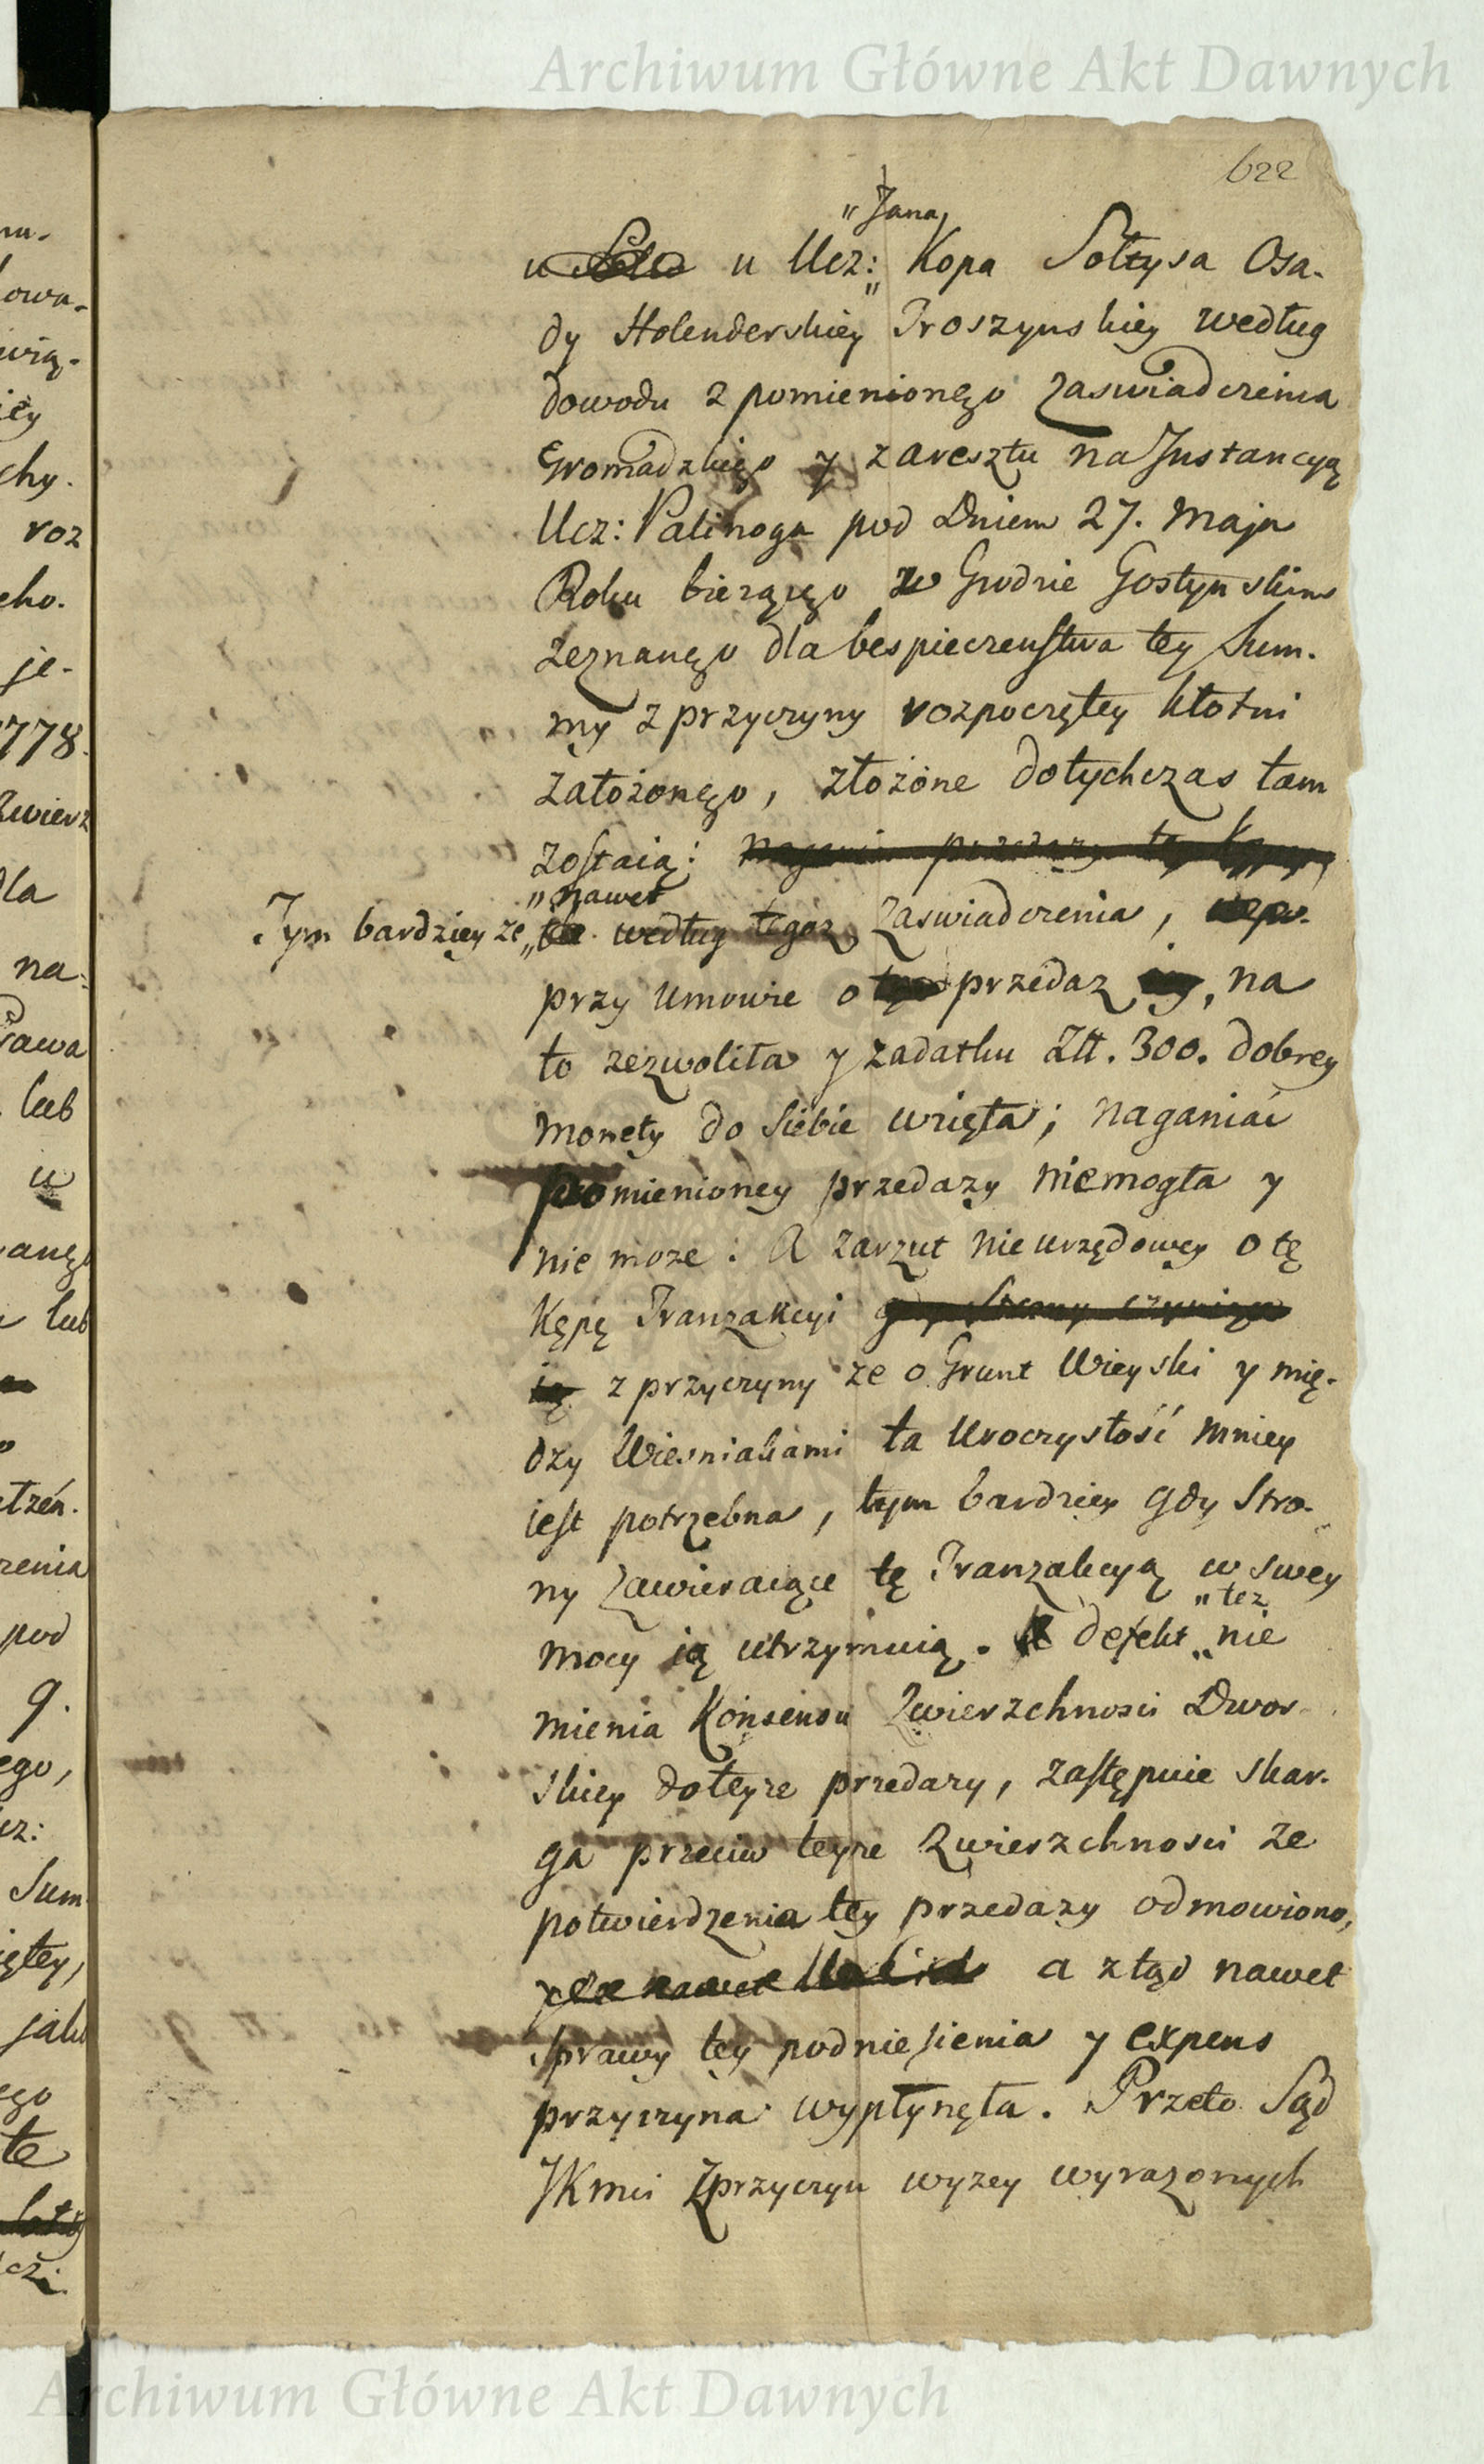 Archiwum Główne Akt Dawnych
622
"Jana
u u Ucz: Kopa Sołtysa Osa-
dy Holenderskiey Troszynskiey według
dowodu z pomienionego zaswiadczenia
Gromadzkiego y z aresztu na Instancyą
Ucz: Palinoga pod Dniem 27. Maja
Roku bierzącego w Grodzie Gostynskim
zeznanego dla bespieczenstwa tey Sum-
my z przyczyny rozpoczętey kłotni
załozonego, złożone dotychczas tam
zostaią:
"nawet
Tym bardziey ze według tegoz zaswiadczenia,
przy umowie o przedaz, na
to zezwoliła y zadatku Złt. 300. dobrey
monety do siebie wzięła; naganiać
pomienioney przedazy niemogła y
nie moze: A zarzut nieurzędowey o tę
Kępę Tranzakcyi
z przyczyny ze o Grunt Wieyski y mię-
dzy Wiesniakami ta Uroczystość mniey
iest potrzebna, tym bardziey gdy Stro-
ny zawieraiące tę Tranzakcyą w swey
"tez
mocy ią utrzymuią. A defekt nie
mienia Konsensu Zwierzchnosci Dwor-
skiey do teyze przedazy, zastępuie skar-
ga przeciw teyze Zwierzchnosci ze
potwierdzenia tey przedazy odmowiono,
a ztąd nawet
sprawy tey podniesienia y expens
przyczyna wypłynęła. Przeto Sąd
JKmci z przyczyn wyzey wyrazonych
Archiwum Główne Akt Dawnych